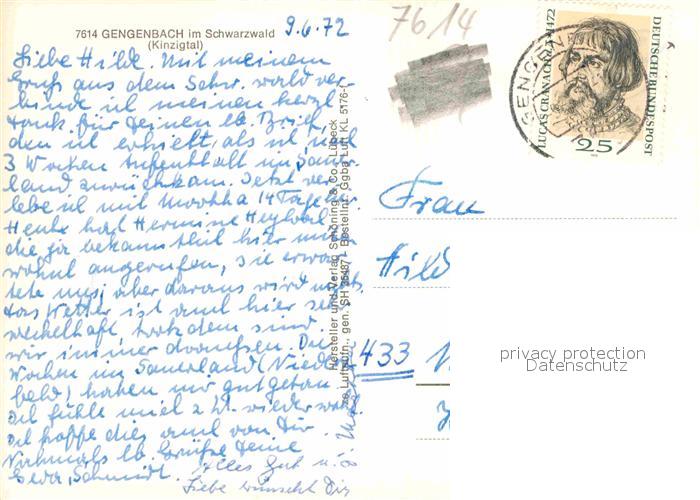 7614 GENGENBACH im Schwarzwald
(Kinzigtal)
9.6.72
Liebe Hilde. Mit meinem
Gruß aus dem Schw. wald ver-
binde ich meinen herzl
Dank für Deinen lb. Brief,
den ich erhielt, als ich nach
3 Wochen Aufenthalt im Sauer
land zurückkam. Jetzt ver
lebe ich mit 14 Tage hier
Heute hat Hermine
die ja bekanntlich hier
wohnt angerufen, sie erwar
tete uns, aber daraus wird nichts.
Das Wetter ist auch hier sehr
wechselhaft trotzdem sind
wir immer draußen. Die
Wochen im Sauerland (Nieder
) haben mir gut getan
ich fühle mich z. Zt. wieder wohl
ich hoffe dies auch von Dir.
Nochmals lb. Grüße Deine
Schmidt.
Alles Gute u.
Liebe wünscht Dir
Hersteller und Verlag Schöning & Co., Lübeck
gen. SH 35487 Bestellnr. Ggba Luft KL 5176-
7614
GENGEN
LUCAS CRANACH 1472
DEUTSCHE BUNDESPOST
25
Frau
Hild
433
privacy protection
Datenschutz